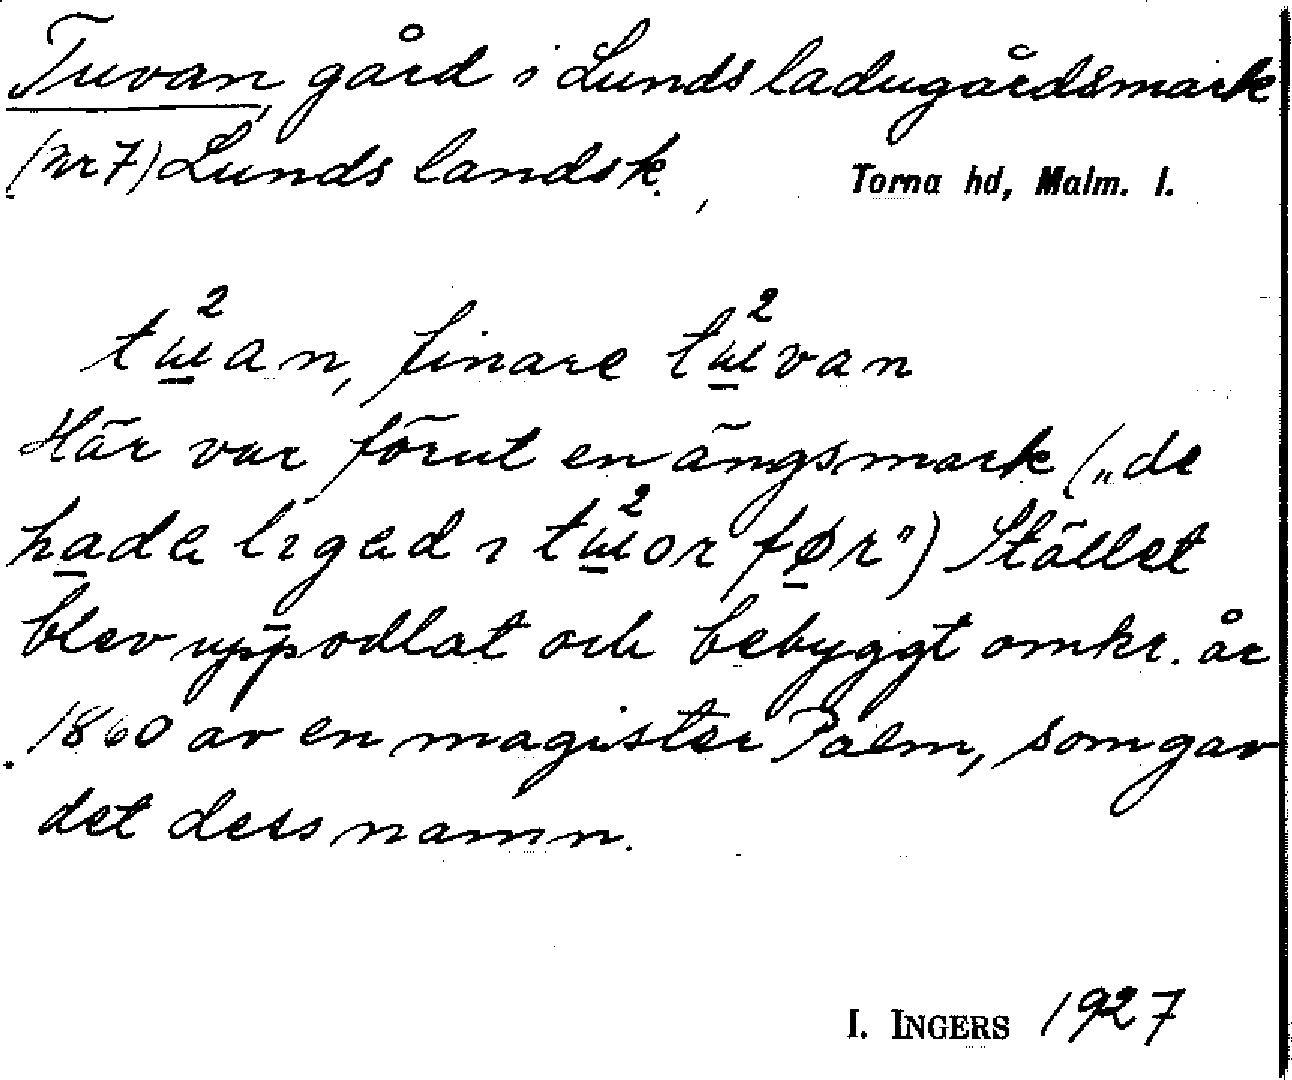 Tuvan, gård i Lunds ladugårdsmark
(nr 7) Lunds landsk., Torna hd, Malm. l.
tɯ̲²an, finare tɯ̲²van
Här var förut en ängsmark („de
ha̲da ligad i tɯ̲²or fø̲r") Stället
blev uppodlat och bebyggt omkr. år
1860 av en magister Palm, som gav
det dess namn.
I. INGERS 1927